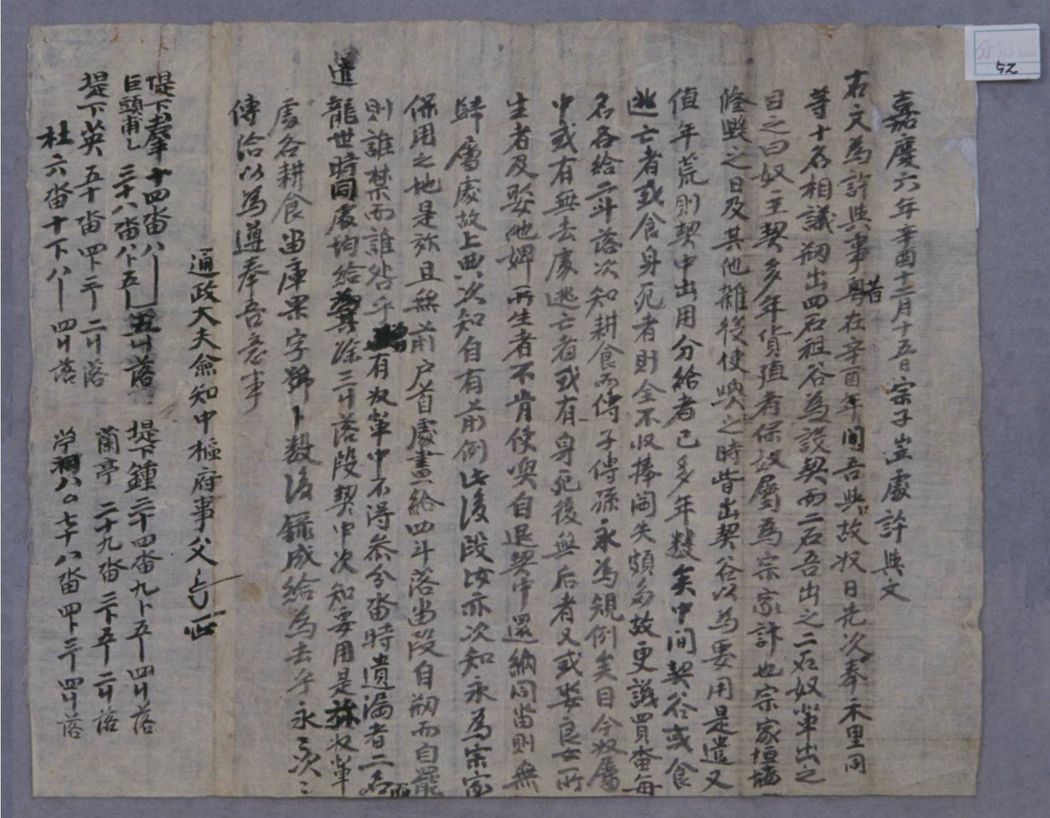 嘉慶六年辛酉十二月十五日宗子 處許與文
右文爲許與事粤昔在辛酉年間吾與故奴日先次奉禾里同
等十名相議刱出四石租谷爲設契而二石吾出之二石奴輩出之
目之曰奴主契多年貨殖者保奴屬爲宗家計也宗家垣墻
修毁之日及其他雜役使喚之時皆出契谷以爲要用是遣又
値年荒則契中出用分給者已多年數矣中間契谷或食
逃亡者或食身死者則全不收捧閪失頗多故更議買畓每
名各給二斗落次知耕食而傳子傳孫永爲規例矣目今奴屬
中或有無去處逃亡者或有身死後無后者又或娶良女所
生者及娶他婢所生者不肯使喚自退契中還納同畓則無
歸屬處故上典次知自有前例此後段汝亦次知永爲宗家
保用之地是旀且無前戶首處畫給四斗落畓段自刱而自罷
則誰禁而誰咎乎 有奴輩中不得參分畓時遺漏者二名
遣龍世時同處均給 其除三斗落段契中次知要用是旀奴輩
處各耕食畓庫累字號卜數後錄成給爲去乎永永次次
傳給以爲遵奉吾意事
通政大夫僉知中樞府事父
堤下 十四畓八卜 五斗落 堤下鍾二十四畓九卜五 四斗落
巨頭甫 三十八畓八卜五 蘭亭 二十九畓二卜五 二斗落
堤下英五十畓四卜三 二斗落 八十八畓四卜三 四斗落
杜六畓十卜八 四斗落